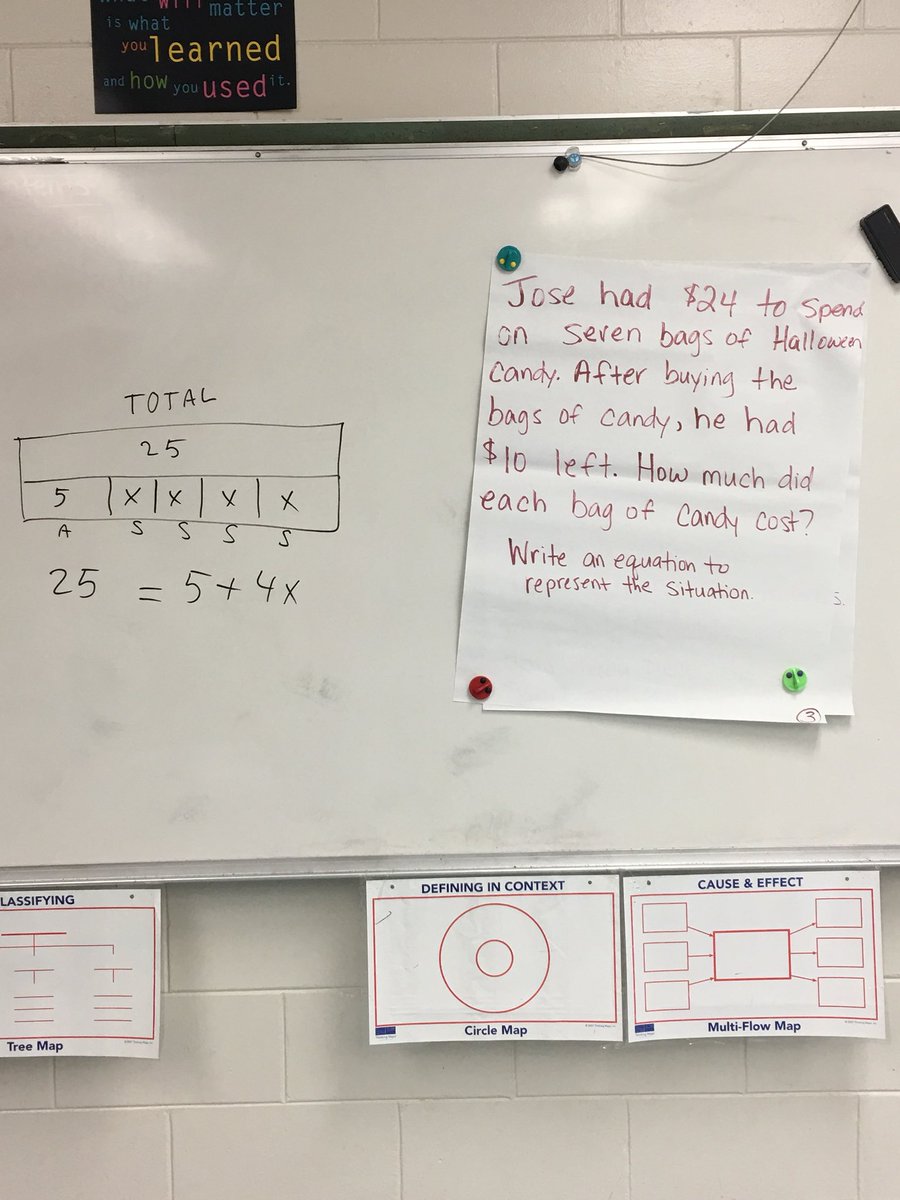 what will matter
is what
you learned
and how you used it.
TOTAL
25
5 x x x x
A S S S S
25 = 5 + 4x
Jose had $24 to spend
on seven bags of Halloween
candy. After buying the
bags of candy, he had
$10 left. How much did
each bag of candy cost?
Write an equation to
represent the situation.
5.
3
LASSIFYING
Tree Map
DEFINING IN CONTEXT
Circle Map
CAUSE & EFFECT
Multi-Flow Map